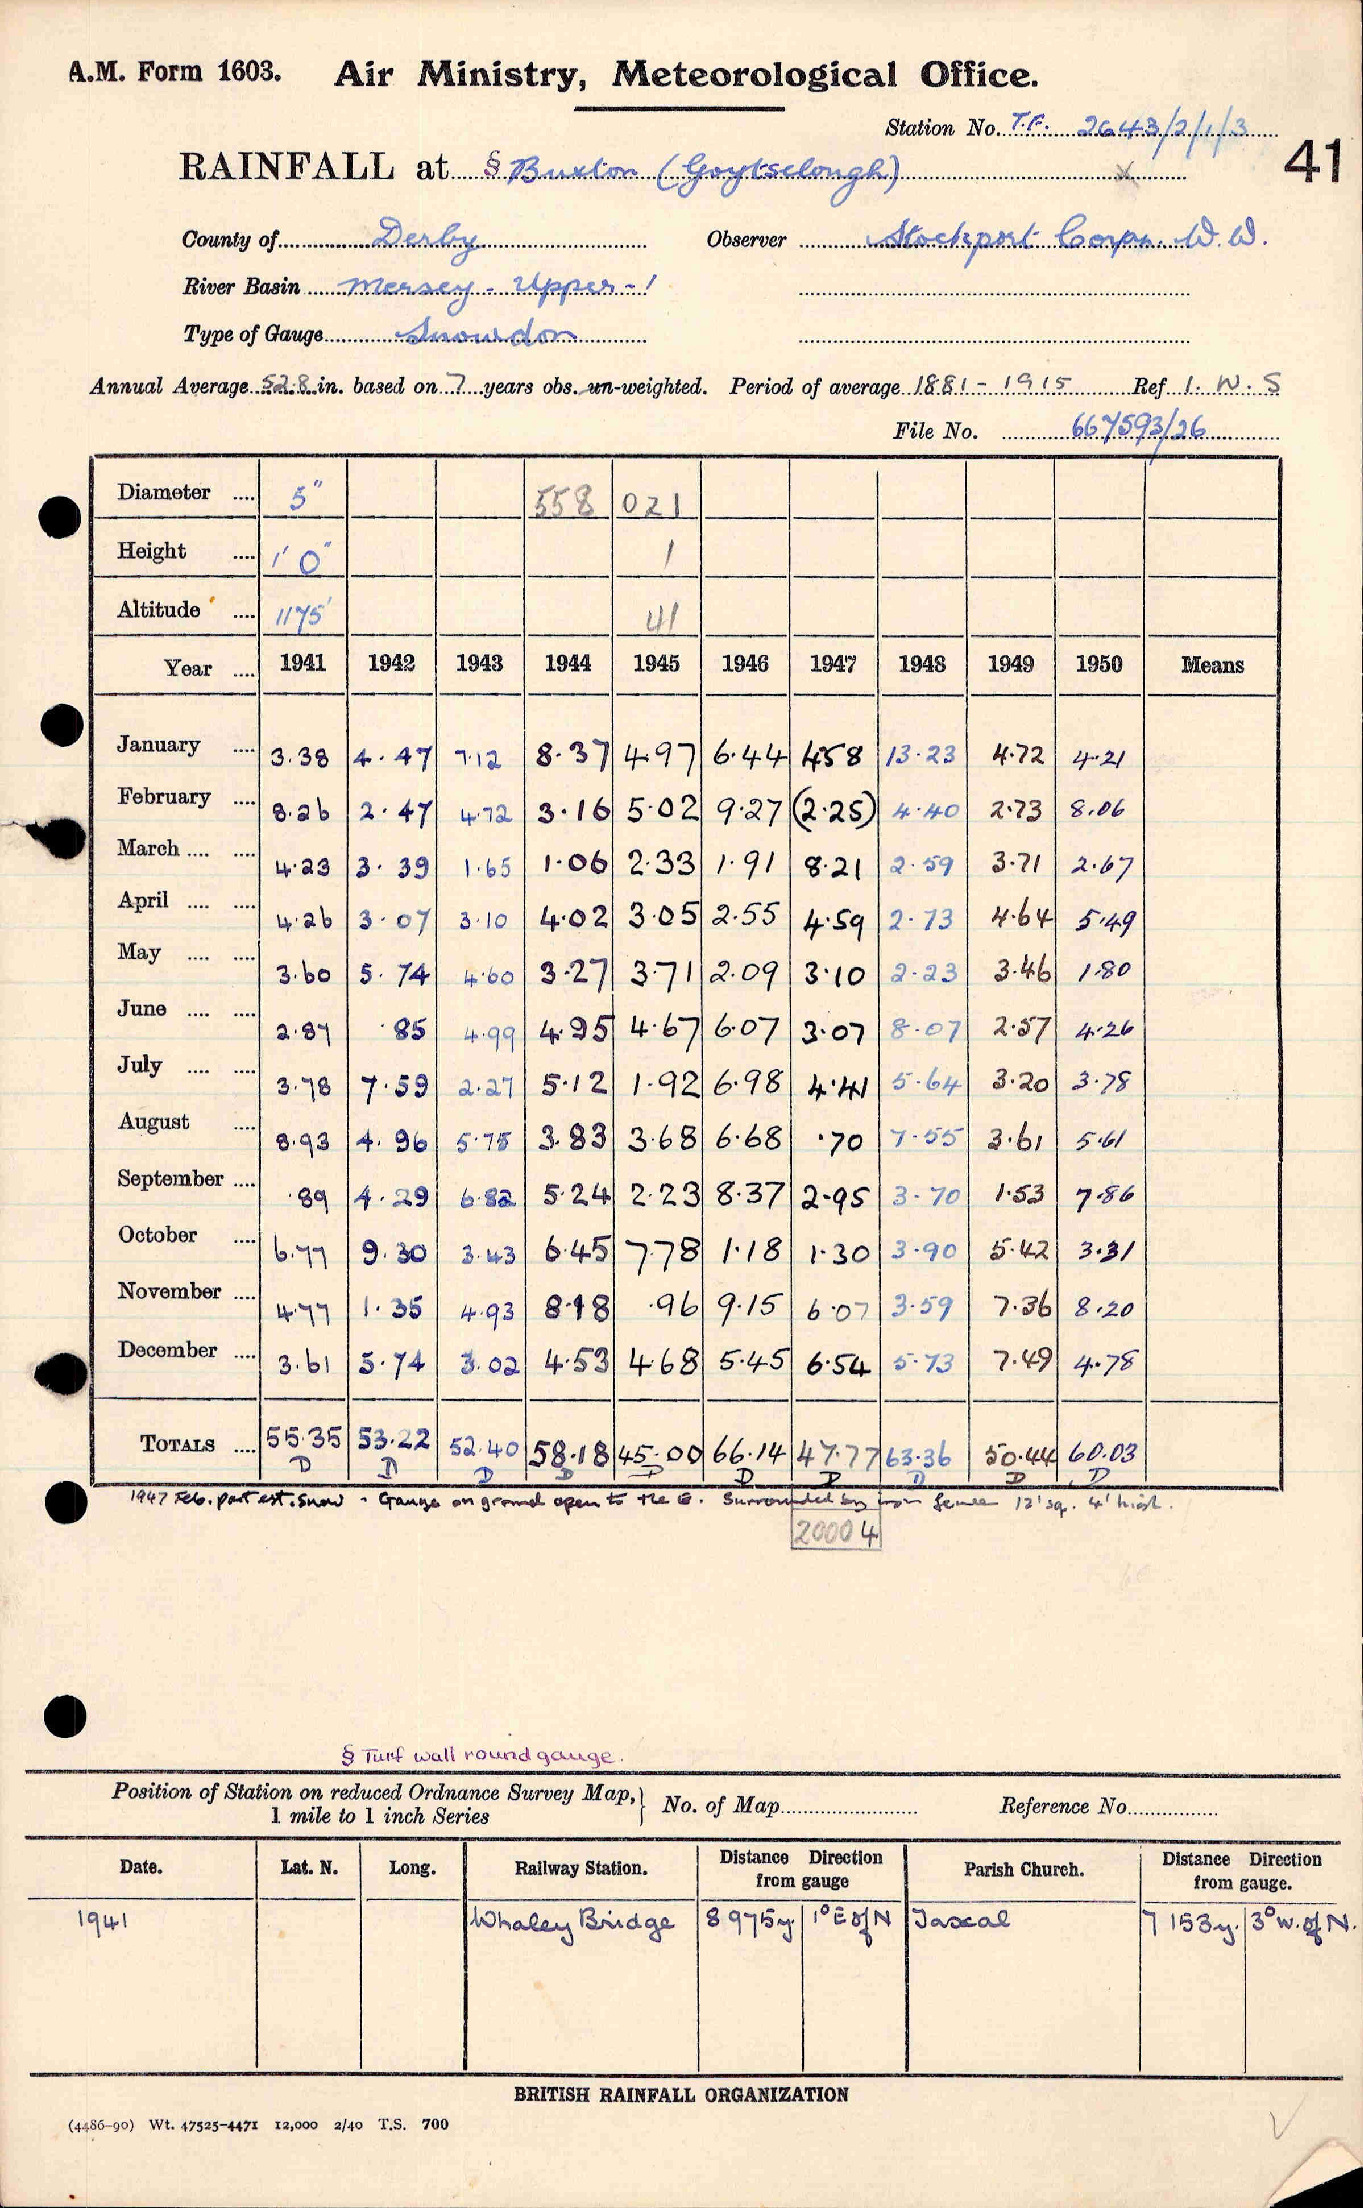 A.M. Form 1603. Air Ministry, Meteorological Office.
Station No. T.F. 2643/2/1/3
41
RAINFALL at § Buxton (Goytsclough)
County of Derby Observer Stockport Corpn. W.W.
River Basin Mersey - Upper - 1
Type of Gauge Snowdon
Annual Average 52.8 in. based on 7 years obs. un-weighted. Period of average 1881 - 1915 Ref I. W. S
File No. 667593/26
Diameter .... 5" 558 021
Height .... 1' 0" 1
Altitude .... 1175' 41
Year .... 1941 1942 1943 1944 1945 1946 1947 1948 1949 1950 Means
January .... 3.38 4.47 7.12 8.37 4.97 6.44 4.58 13.23 4.72 4.21
February .... 8.26 2.47 4.72 3.16 5.02 9.27 (2.25) 4.40 2.73 8.06
March .... .... 4.23 3.39 1.65 1.06 2.33 1.91 8.21 2.59 3.71 2.67
April .... .... 4.26 3.07 3.10 4.02 3.05 2.55 4.59 2.73 4.64 5.49
May .... .... 3.60 5.74 4.60 3.27 3.71 2.09 3.10 2.23 3.46 1.80
June .... .... 2.87 .85 4.99 4.95 4.67 6.07 3.07 8.07 2.57 4.26
July .... .... 3.78 7.59 2.27 5.12 1.92 6.98 4.41 5.64 3.20 3.78
August .... 8.93 4.96 5.75 3.83 3.68 6.68 .70 7.55 3.61 5.61
September .... .89 4.29 6.82 5.24 2.23 8.37 2.95 3.70 1.53 7.86
October .... 6.77 9.30 3.43 6.45 7.78 1.18 1.30 3.90 5.42 3.31
November .... 4.77 1.35 4.93 8.18 .96 9.15 6.07 3.59 7.36 8.20
December .... 3.61 5.74 3.02 4.53 4.68 5.45 6.54 5.73 7.49 4.78
TOTALS .... 55.35 53.22 52.40 58.18 45.00 66.14 47.77 63.36 50.44 60.03
D D D D D D D D D D
1947 Feb. part est. snow - Gauge on ground open to the E. Surrounded by iron fence 12' sq. 4' high.
20004
§ Turf wall round gauge.
Position of Station on reduced Ordnance Survey Map,} No. of Map Reference No.
1 mile to 1 inch Series
Date. Lat. N. Long. Railway Station. Distance Direction from gauge Parish Church. Distance Direction from gauge.
1941 Whaley Bridge 8975y. 1° E of N Taxal 7153y. 3° W. of N.
BRITISH RAINFALL ORGANIZATION
(4486-90) Wt. 47525-4471 12,000 2/40 T.S. 700